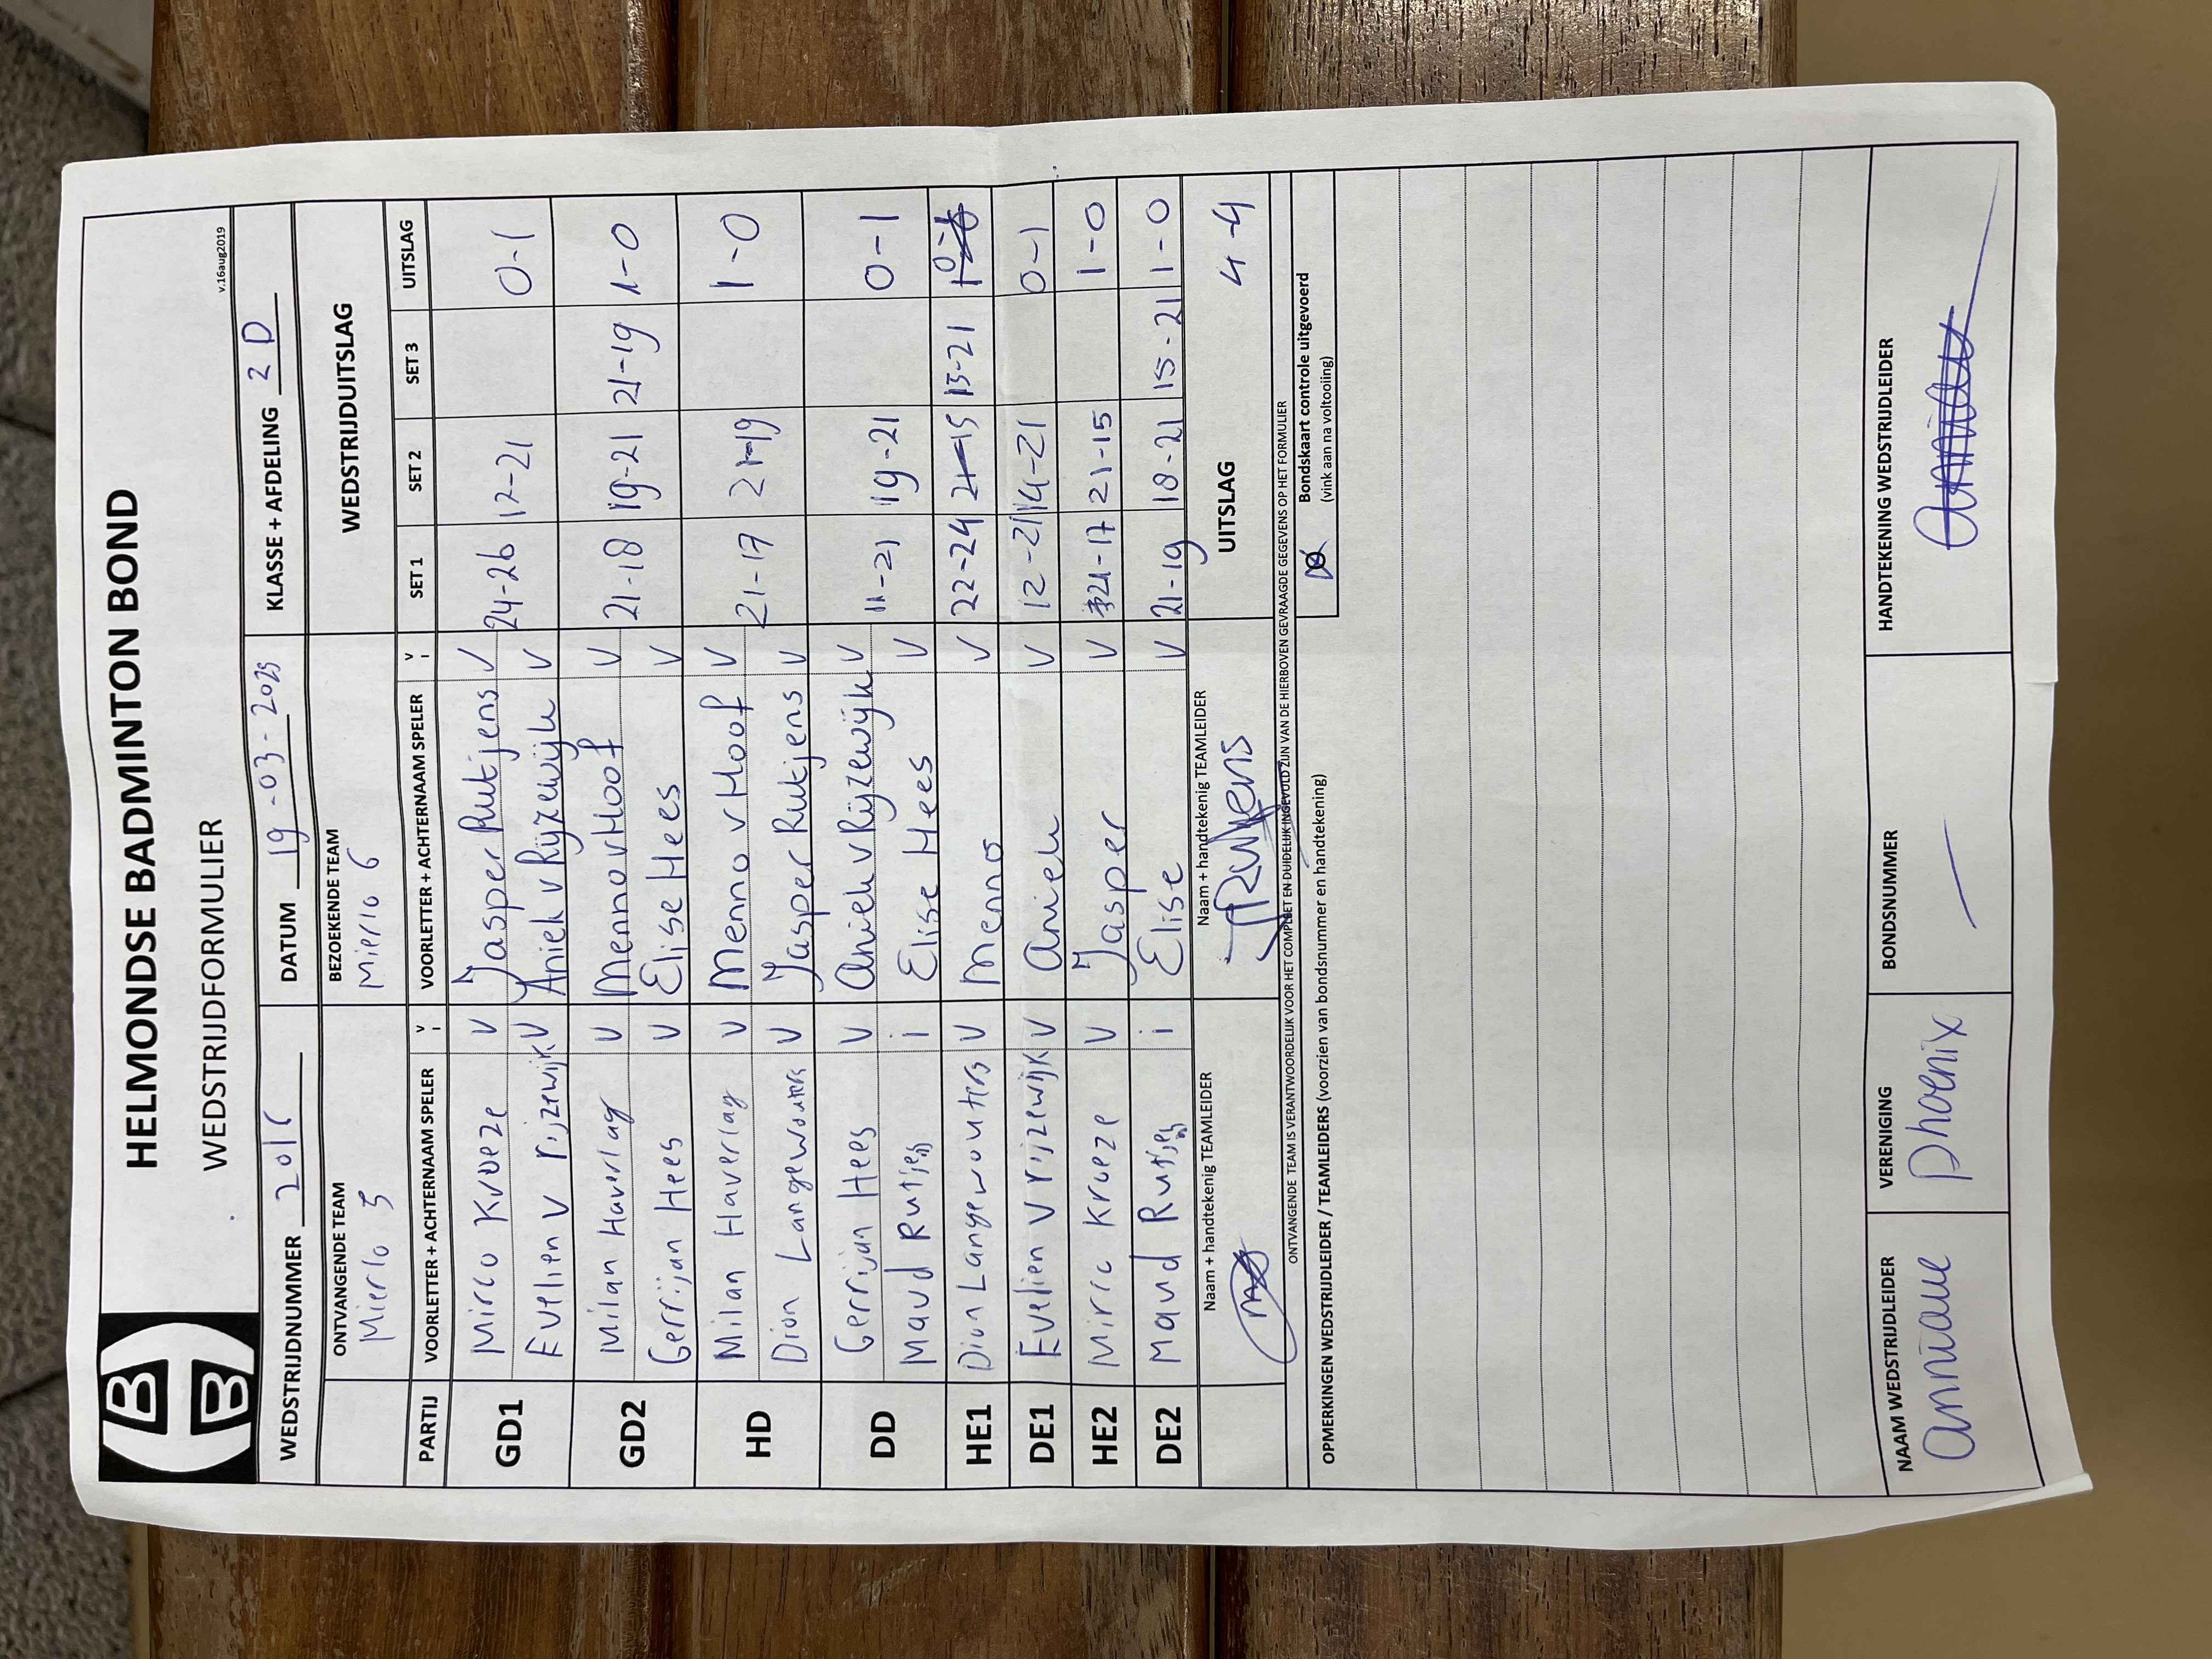 HELMONDSE BADMINTON BOND
WEDSTRIJDFORMULIER
v.16aug2019
WEDSTRIJDNUMMER DATUM 19-03-2025 KLASSE + AFDELING 2 D
ONTVANGENDE TEAM BEZOEKENDE TEAM WEDSTRIJDUITSLAG
Mierlo 5 Mierlo 6
PARTIJ VOORLETTER + ACHTERNAAM SPELER V I VOORLETTER + ACHTERNAAM SPELER V I SET 1 SET 2 SET 3 UITSLAG
GD1 Mirco Kroeze V Jasper Rutjens V 24-26 17-21 0-1
Evelien v rijzewijk V Aniek v Rijzewijk V
GD2 Milan Haverlag V Menno v Hoof V 21-18 19-21 21-19 1-0
Gerrijan Hees V Elise Hees V
HD Milan Haverlag V Menno v Hoof V 21-17 21-19 1-0
Dion Langewouters V Jasper Rutjens V
DD Gerrijan Hees V Aniek v Rijzewijk V 11-21 19-21 0-1
Maud Rutjes i Elise Hees V
HE1 Dion Langewouters V Menno V 22-24 21-15 15-21
DE1 Evelien v rijzewijk V Aniek V 12-21 14-21 0-1
HE2 Kroeze V Jasper V 21-17 21-15 1-0
DE2 Maud Rutjes i Elise V 21-19 18-21 15-21 1-0
Naam + handtekenig TEAMLEIDER Naam + handtekenig TEAMLEIDER UITSLAG 4-4
ONTVANGENDE TEAM IS VERANTWOORDELIJK VOOR HET COMPLEET EN DUIDELIJK INGEVULD ZIJN VAN DE HIERBOVEN GEVRAAGDE GEGEVENS OP HET FORMULIER
OPMERKINGEN WEDSTRIJDLEIDER / TEAMLEIDERS (voorzien van bondsnummer en handtekening)
Bondskaart controle uitgevoerd
(vink aan na voltooiing)
NAAM WEDSTRIJDLEIDER VERENIGING BONDSNUMMER HANDTEKENING WEDSTRIJDLEIDER
Phoenix